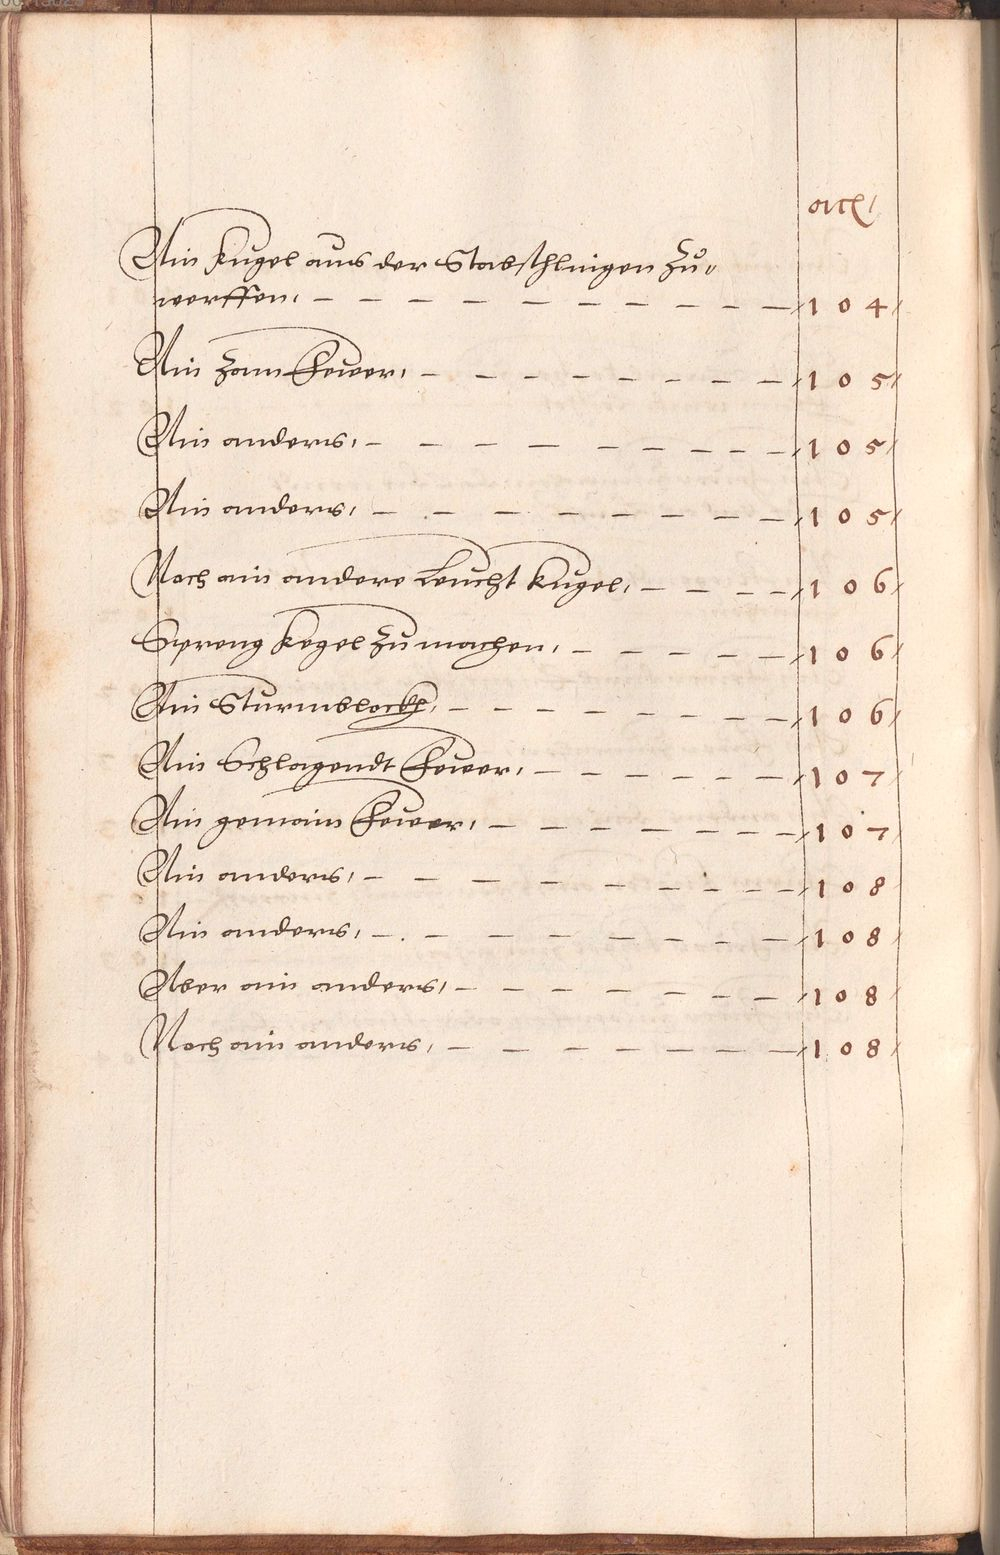 artl,
Ain Kugel aus der Stabschlingen Zů,
werffen, — — — — — — — — — — 104
Ain Zam Feuer, — — — — — — — 105
Ain anders, — — — — — — — — 105
Ain anders, — — — — — — — 105
Noch ain andere Leucht Kugel, — — — — 106
Spreng Kegel Zu machen, — — — — — 106
Ain Sturmblockh, — — — — — — — 106
Ain Schlagendt Feuer, — — — — — — 107
Ain gemain Feuer, — — — — — — — 107
Ain anders, — — — — — — — — — 108
Ain anders, — — — — — — — — 108
Aber ain anders, — — — — — — — 108
Noch ain anders, — — — — — — — 108